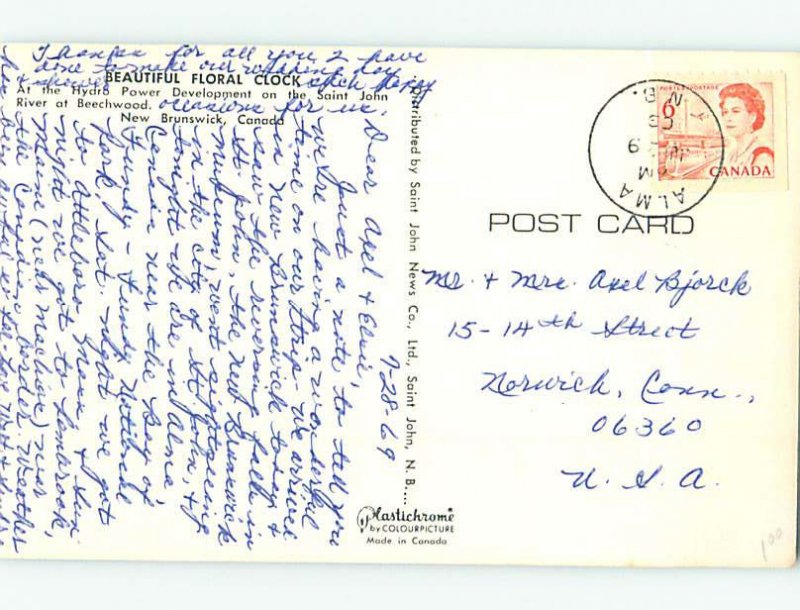 Thank you for all you 2 have
done to make our wedding day
& shower such happy
occasions for us.
BEAUTIFUL FLORAL CLOCK
At the Hydro Power Development on the Saint John
River at Beechwood.
New Brunswick, Canada
7-28-69
Dear Axel & Elsie,
Just a note to tell you
we are having a wonderful
time on our trip. We arrived
in New Brunswick today &
saw the reversing falls in
St John, the New Brunswick
museum, went sightseeing
in the city of St John, &
tonight we are in Alma
Canada near the Bay of
Fundy - Fundy National
Park. Sat. night we got
to Attleboro Mass & Sun.
night we got to Pembrook,
Maine (near Machias) near
the Canadian border. Weather
Distributed by Saint John News Co., Ltd., Saint John, N. B....
Plastichrome
by COLOURPICTURE
Made in Canada
POSTES POSTAGE
6
CANADA
ALMA
N.B.
69
POST CARD
Mr. + Mrs. Axel Bjorck
15-14th Street
Norwich, Conn.,
06360
U. S. A.
1.00